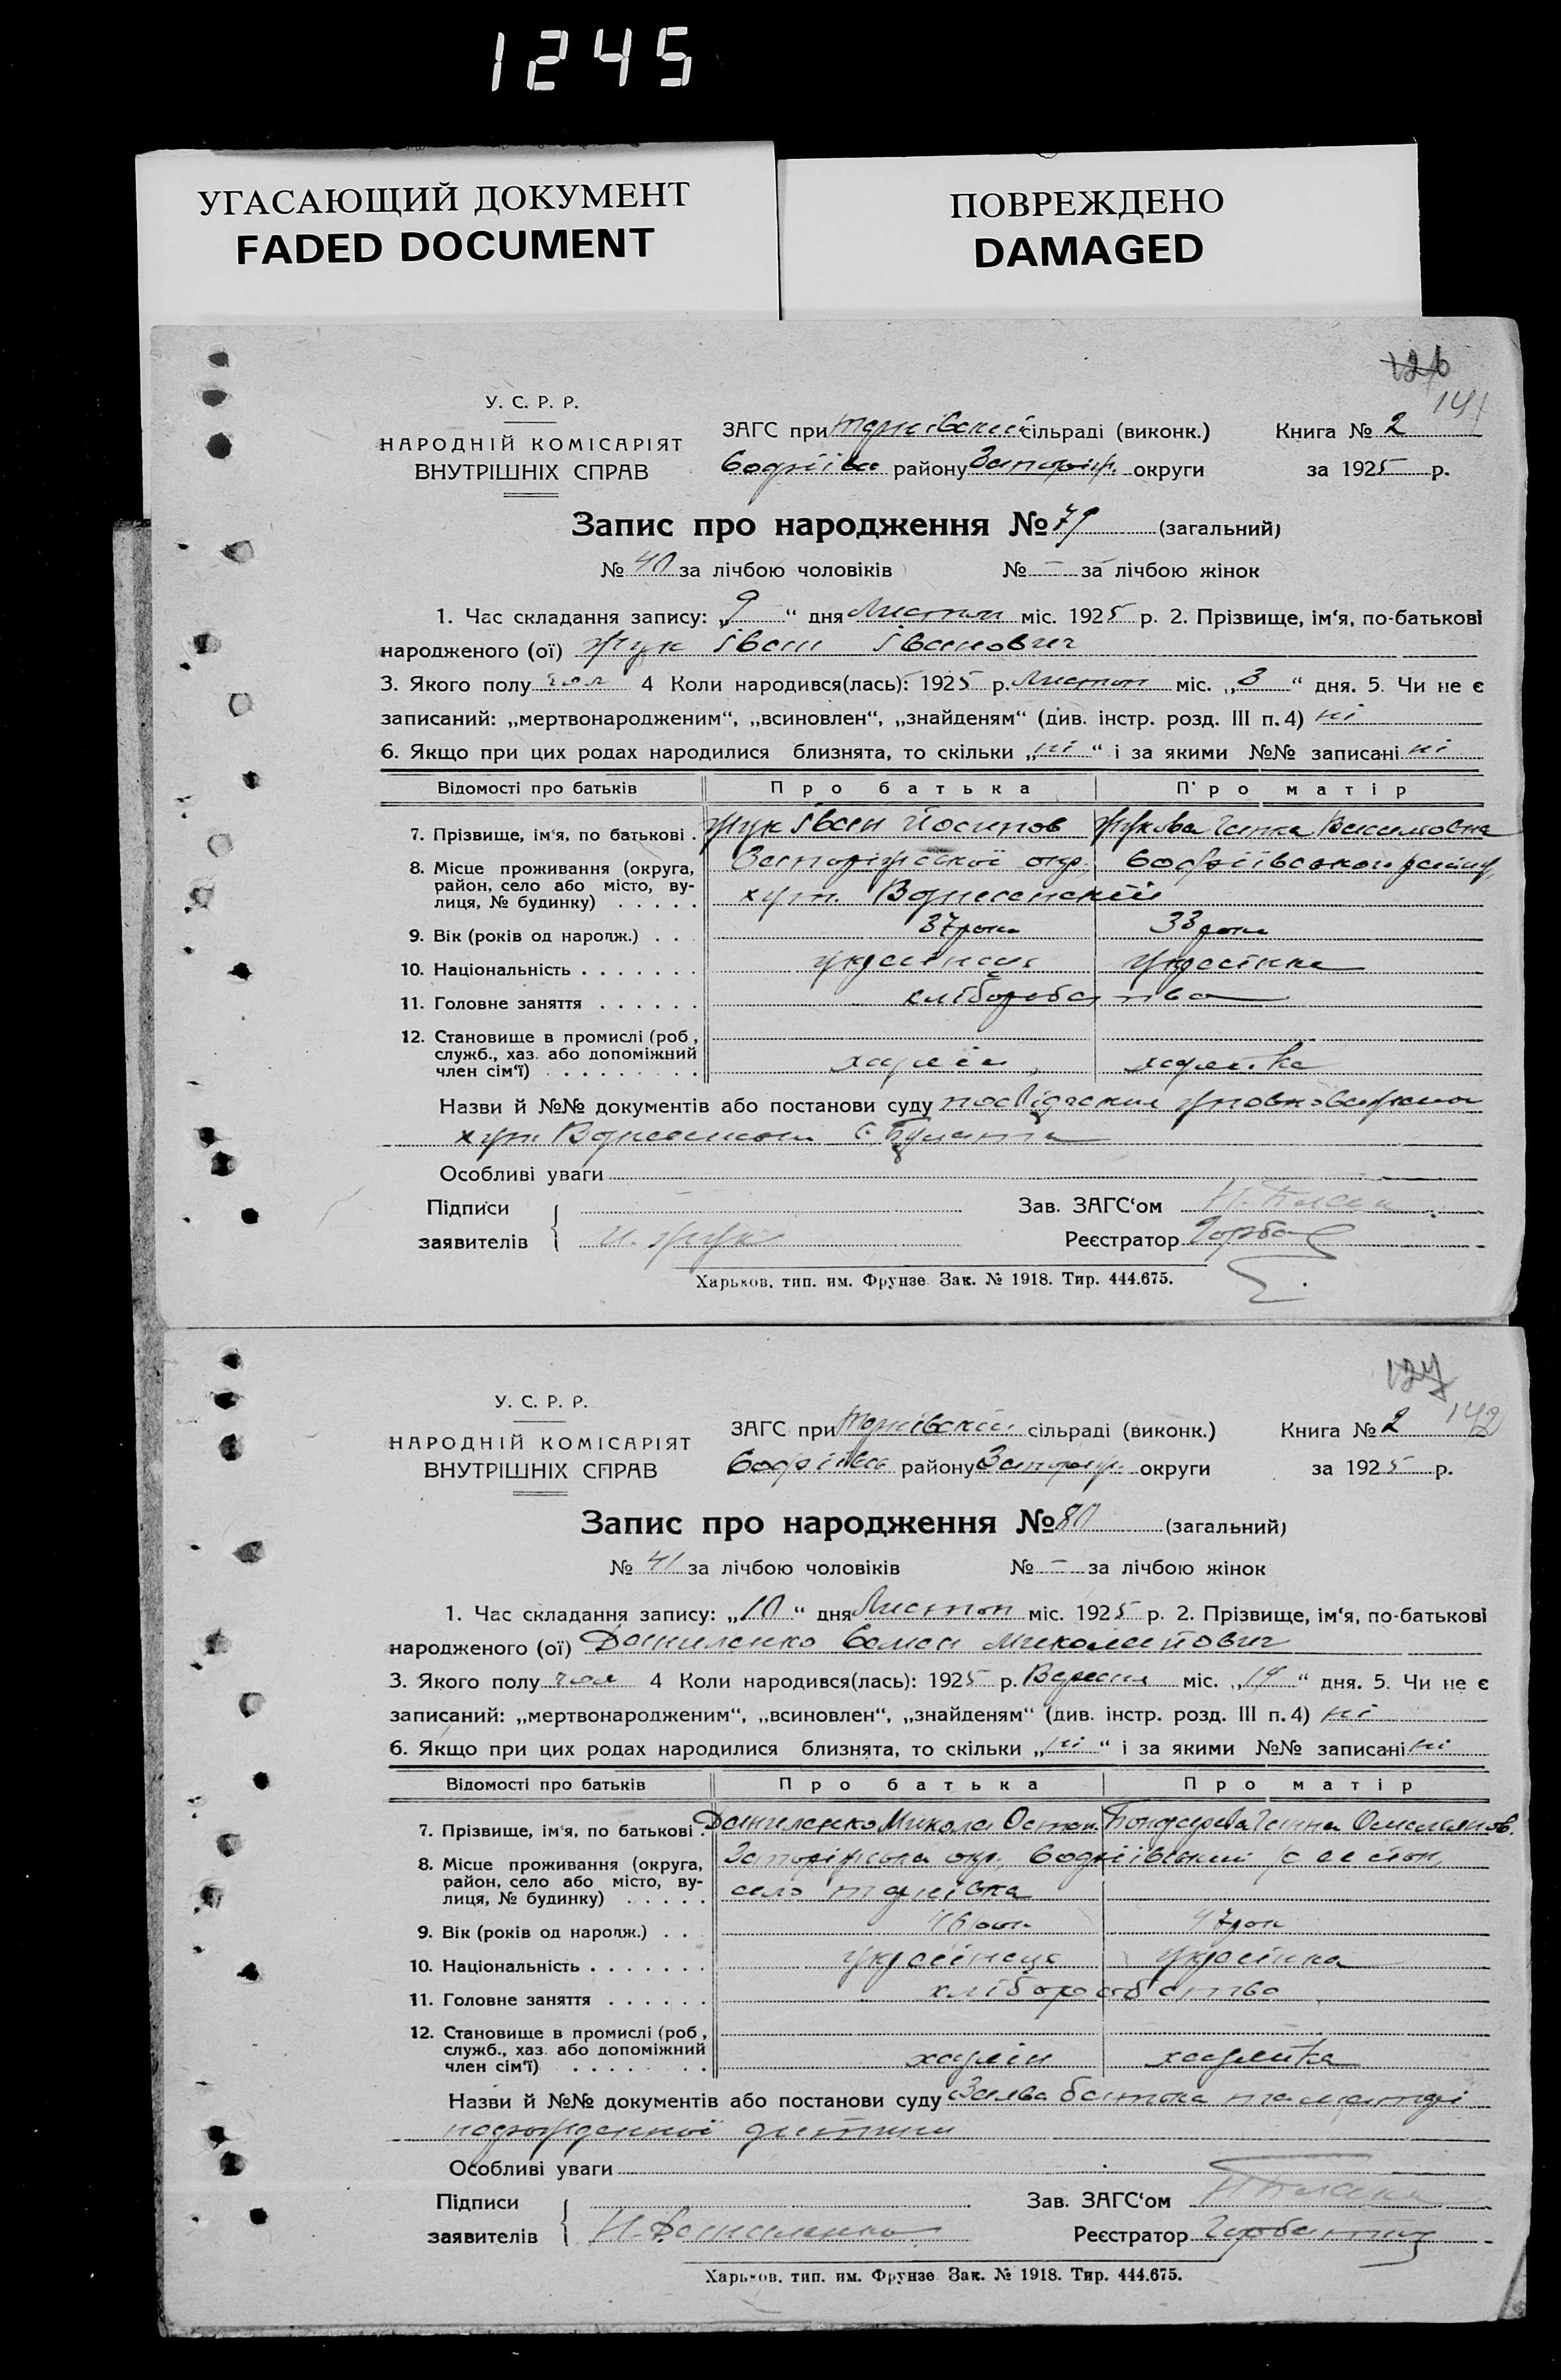 1245
УГАСАЮЩИЙ ДОКУМЕНТ
FADED DOCUMENT
ПОВРЕЖДЕНО
DAMAGED
126
141
У. С. Р. Р.
НАРОДНІЙ КОМІСАРІЯТ
ВНУТРІШНІХ СПРАВ
ЗАГС при Тернівський сільраді (виконк.) Книга № 2
Софіївс району Запоріж. округи за 1925 р.
Запис про народження № 79 (загальний)
№ 40 за лічбою чоловіків № – за лічбою жінок
1. Час складання запису: „9“ дня Листоп міс. 1925 р. 2. Прізвище, ім‘я, по-батькові
народженого (ої) Жук Іван Іванович
3. Якого полу чол 4 Коли народився(лась): 1925 р. Листоп міс. „3“ дня. 5. Чи не є
записаний: „мертвонародженим“, „всиновлен“, „знайденям“ (див. інстр. розд. III п. 4) ні
6. Якщо при цих родах народилися близнята, то скільки „ні“ і за якими №№ записані ні
Відомості про батьків Про батька Про матір
7. Прізвище, ім‘я, по батькові . Жук Іван Йосипов Жукова Ганна
8. Місце проживання (округа, район, село або місто, вулиця, № будинку) Запоріжської окр., Софіївського району,
хут. Вознесенский
9. Вік (років од народж.) . . 37 рок 33 рок
10. Національність . . . . . . . українець українка
11. Головне заняття . . . . . . хліборобство
12. Становище в промислі (роб, служб., хаз. або допоміжний член сім‘ї) хазяїн хазяйка
Назви й №№ документів або постанови суду
хут.
Особливі уваги
Підписи Зав. ЗАГС‘ом
заявителів И. Жук Реєстратор
Харьков, тип. им. Фрунзе Зак. № 1918. Тир. 444.675.
127
142
У. С. Р. Р.
НАРОДНІЙ КОМІСАРІЯТ
ВНУТРІШНІХ СПРАВ
ЗАГС при Тернівскій сільраді (виконк.) Книга № 2
Софіївс району Запоріж. округи за 1925 р.
Запис про народження № 80 (загальний)
№ 41 за лічбою чоловіків № – за лічбою жінок
1. Час складання запису: „10“ дня Листоп міс. 1925 р. 2. Прізвище, ім‘я, по-батькові
народженого (ої) Даниленко Семен Миколайович
3. Якого полу чол 4 Коли народився(лась): 1925 р. Вересня міс. „14“ дня. 5. Чи не є
записаний: „мертвонародженим“, „всиновлен“, „знайденям“ (див. інстр. розд. III п. 4) ні
6. Якщо при цих родах народилися близнята, то скільки „ні“ і за якими №№ записані ні
Відомості про батьків Про батька Про матір
7. Прізвище, ім‘я, по батькові . Даниленко Микола Остап. Бондарева Ганна Омельянов.
8. Місце проживання (округа, район, село або місто, вулиця, № будинку) Запоріжська окр., Софіївський район,
село Тернівка
9. Вік (років од народж.) . . 46 рок 47 рок
10. Національність . . . . . . . українець українка
11. Головне заняття . . . . . . хліборобство
12. Становище в промислі (роб, служб., хаз. або допоміжний член сім‘ї) хазяїн хазяйка
Назви й №№ документів або постанови суду Заява батька та матері
дитини
Особливі уваги
Підписи Зав. ЗАГС‘ом
заявителів Н. Даниленко Реєстратор
Харьков, тип. им. Фрунзе Зак. № 1918. Тир. 444.675.